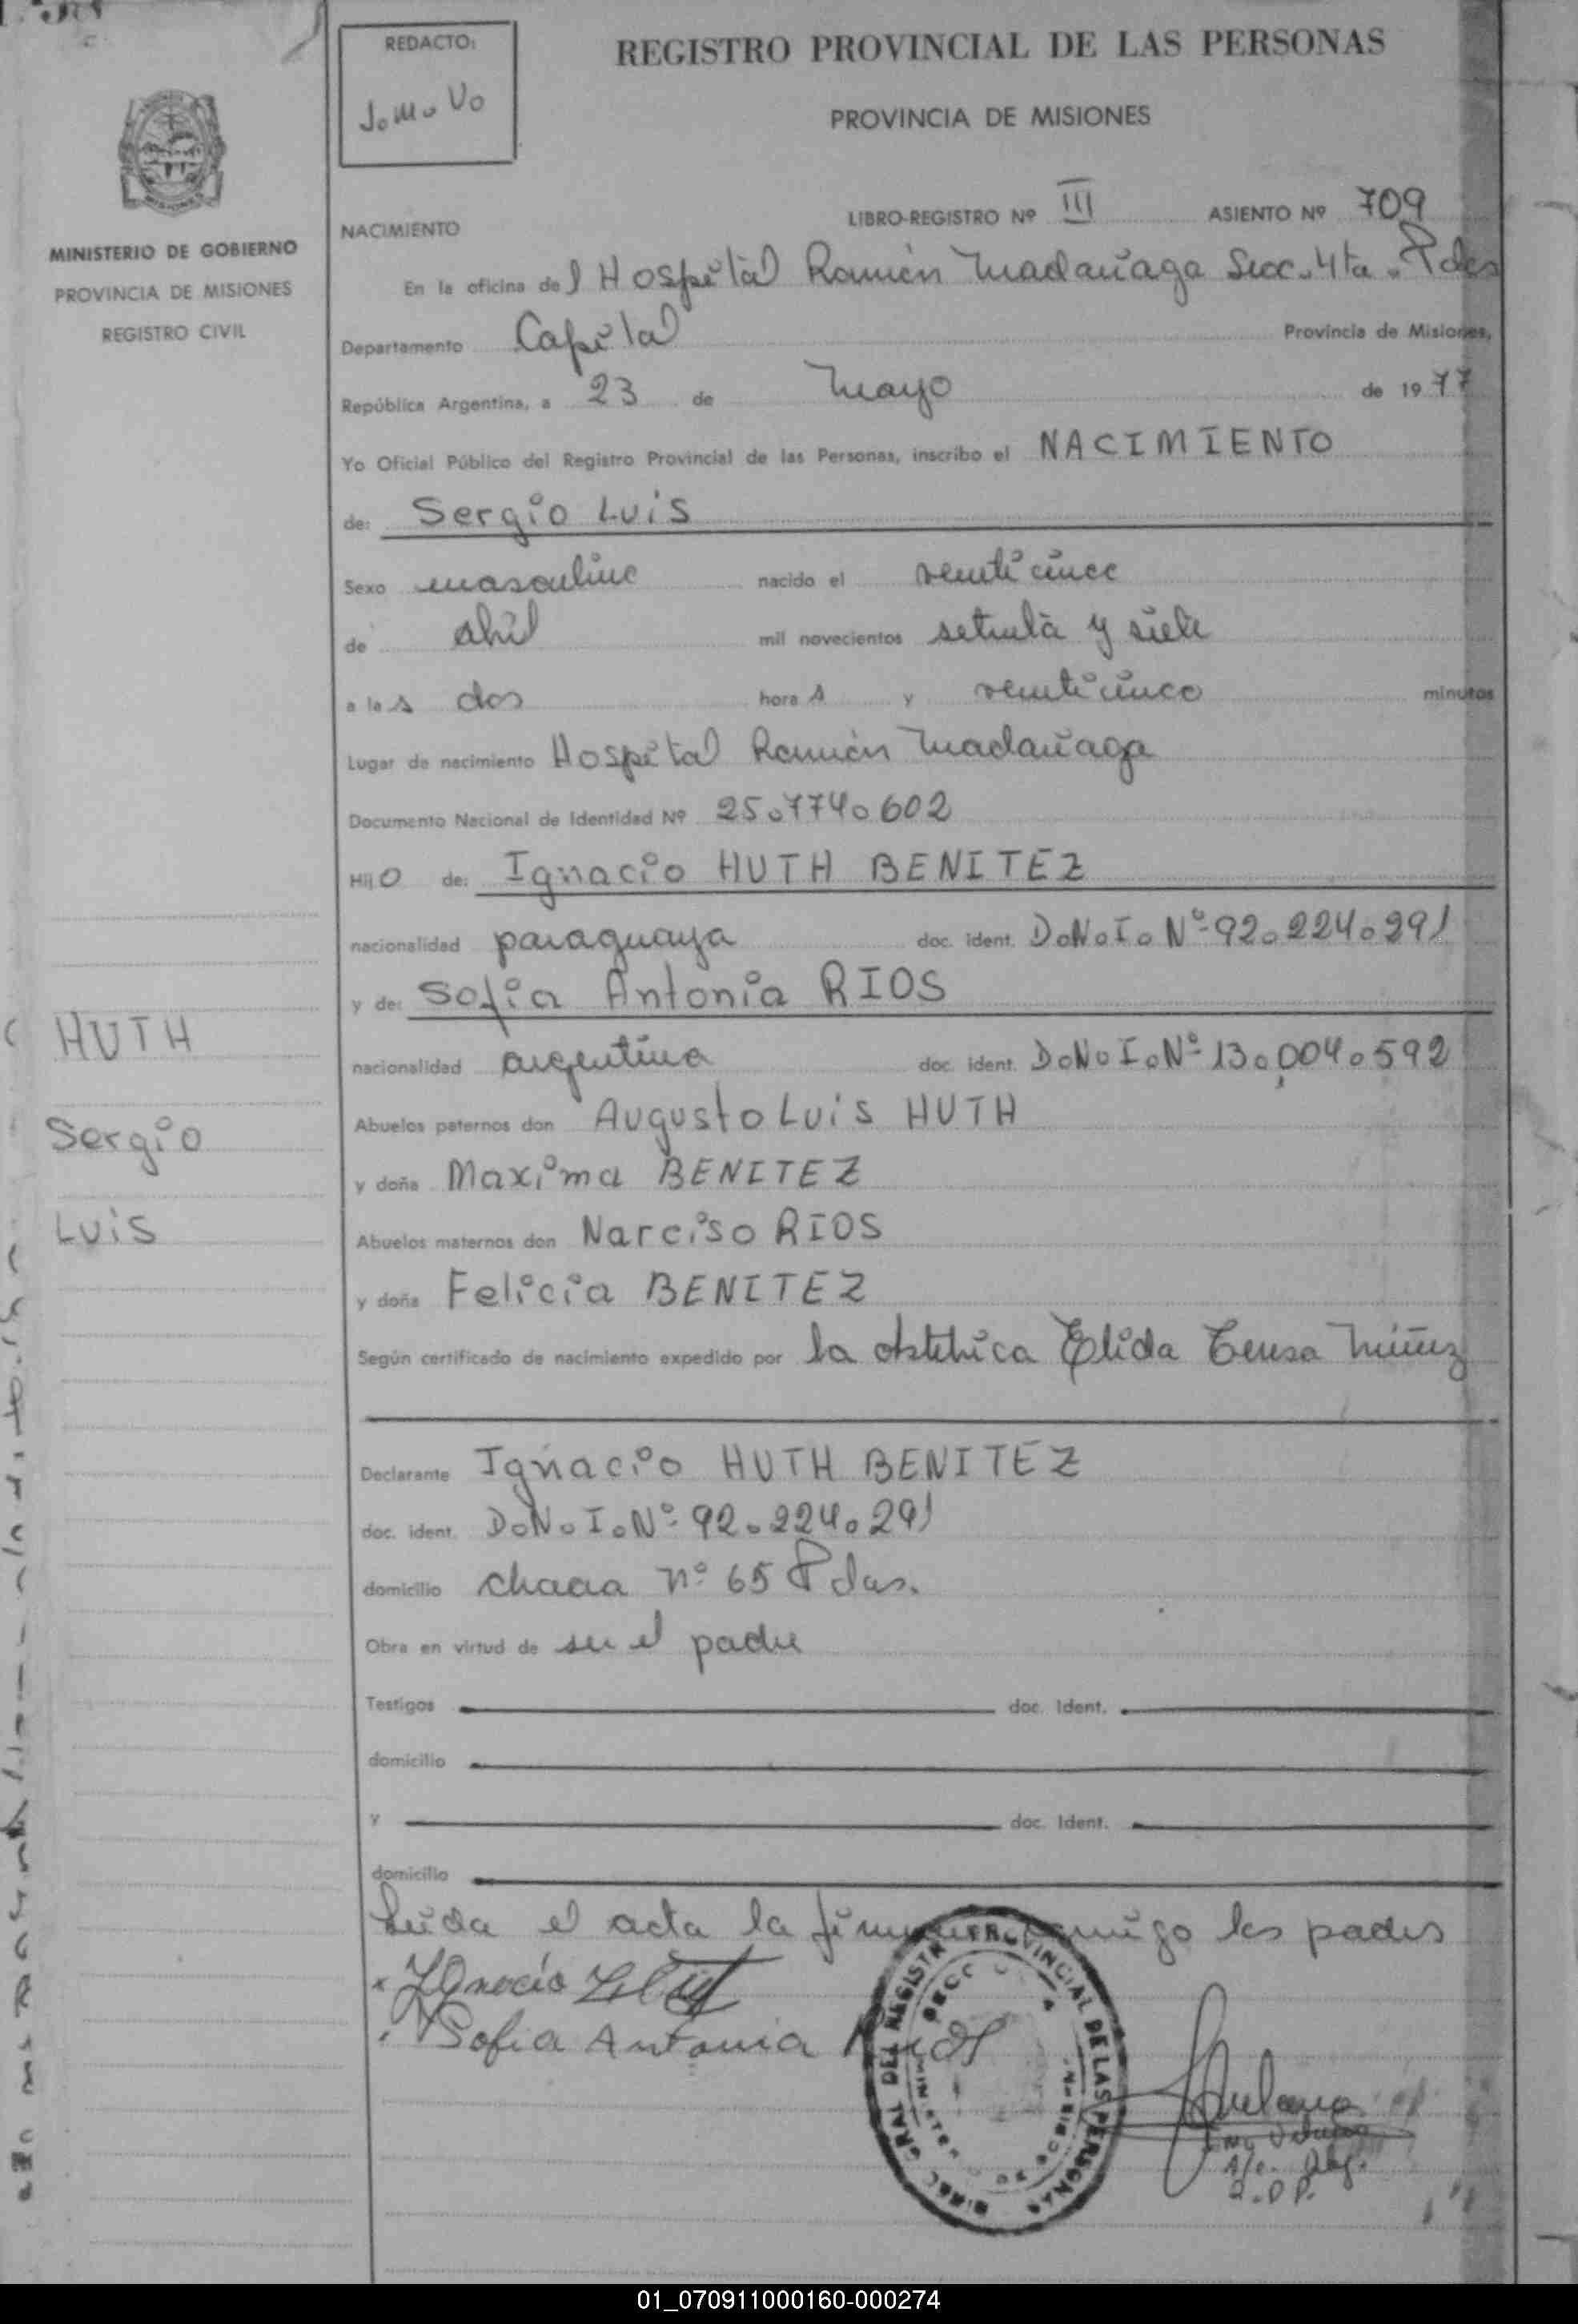 REDACTO:
J.M.V.
REGISTRO PROVINCIAL DE LAS PERSONAS
PROVINCIA DE MISIONES
MISIONES
MINISTERIO DE GOBIERNO
PROVINCIA DE MISIONES
REGISTRO CIVIL
NACIMIENTO LIBRO-REGISTRO Nº III ASIENTO Nº 709
En la oficina del Hospital Ramón Madariaga Secc. 4ta. Pdas
Departamento Capital Provincia de Misiones,
República Argentina, a 23 de Mayo de 1977
Yo Oficial Público del Registro Provincial de las Personas, inscribo el NACIMIENTO
de: Sergio Luis
Sexo masculino nacido el veinticinco
de abril mil novecientos setenta y siete
a las dos horas y veinticinco minutos
Lugar de nacimiento Hospital Ramón Madariaga
Documento Nacional de Identidad Nº 25.774.602
Hijo de: Ignacio HUTH BENITEZ
nacionalidad paraguaya doc. ident. D.N.I. Nº 92.224.291
y de: Sofia Antonia RIOS
nacionalidad argentina doc. ident. D.N.I. Nº 13.004.592
Abuelos paternos don Augusto Luis HUTH
y doña Maxima BENITEZ
Abuelos maternos don Narciso RIOS
y doña Felicia BENITEZ
Según certificado de nacimiento expedido por la obstétrica Elida Teresa Núñez
Declarante Ignacio HUTH BENITEZ
doc. ident. D.N.I. Nº 92.224.291
domicilio chacra nº 65 Pdas.
Obra en virtud de ser el padre
Testigos doc. Ident.
domicilio
y doc. Ident.
domicilio
Leida el acta la firman conmigo los padres
Ignacio Huth
Sofia Antonia Rios
DIREC. GRAL. DEL REGISTRO PROVINCIAL DE LAS PERSONAS
HUTH
Sergio
Luis
01_070911000160-000274